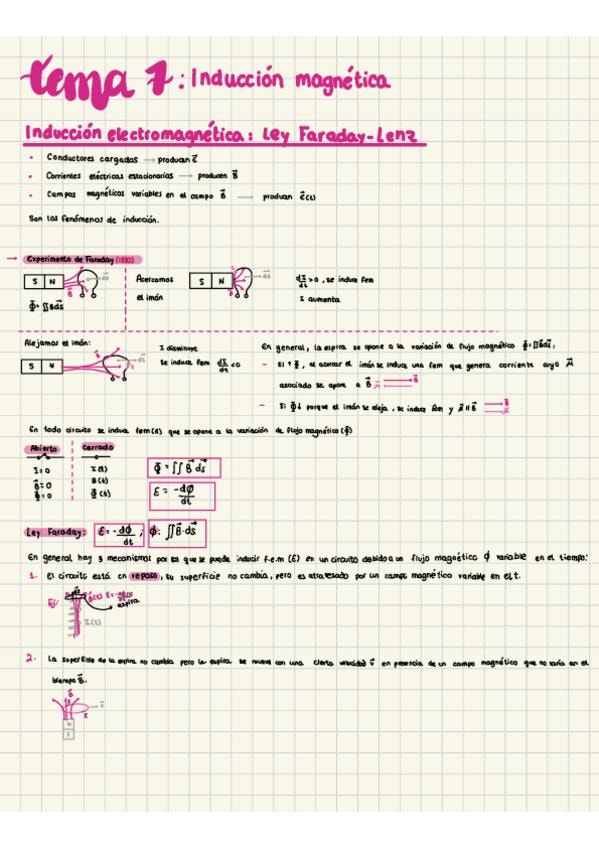 tema 7: Inducción magnética
Inducción electromagnética: Ley Faraday-Lenz
• Conductores cargados → producen
• Corrientes eléctricas estacionarias → producen B⃗
• Campos magnéticos variables en el campo B⃗ → producen ε(t)
Son los fenómenos de inducción.
→ Experimento de Faraday
S N
Φ = ∬B⃗ds⃗
Acercamos
el imán
S N
>0, se induce fem
I aumenta
Alejamos el imán:
S N
I disminuye
se induce fem <0
En general, la espira se opone a la variación de flujo magnético
- Si ↑ Φ, al acercar el imán se induce una fem que genera corriente cuyo
asociado se opone a B⃗
- Si Φ↓ porque el imán se aleja, se induce fem y
En todo circuito se induce fem (ε) que se opone a la variación de flujo magnético (Φ)
Abierto Cerrado
I=0 I(t)
B⃗=0 B(t)
Φ=0 Φ(t)
Φ = ∬ B⃗ ds⃗
ε = -dΦ/dt
Ley Faraday: ε = -dϕ/dt ; ϕ: ∬B⃗·ds⃗
En general hay 3 mecanismos por los que se puede inducir f.e.m (ε) en un circuito debido a un flujo magnético ϕ variable en el tiempo:
1. El circuito está en reposo, su superficie no cambia, pero es atravesado por un campo magnético variable en el t.
Ej:
espira
I(t)
2. La superficie de la espira no cambia pero la espira se mueve con una cierta velocidad v⃗ en presencia de un campo magnético que no varía en el
tiempo B⃗.
B⃗
N
S